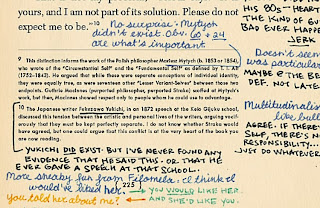 yours, and I am not part of its solution. Please do not
expect me to be.—10
No surprise. Mystych
didn't exist. Obv. 6 + 24
are what's important
9 This distinction informs the work of the Polish philosopher Mateusz Mytych (b. 1853 or 1854),
who wrote of the "Circumstantial Self" and the "Fundamental Self" as defined by T. I. Aft
(1752–1843). He argued that while these were separate conceptions of individual identity,
they were equally true, as were seventeen other "Lesser Variant-Selves" between these two
endpoints. Guthrie MacInnes (purported philosopher, purported Straka) scoffed at Mytych's
work, but then, MacInnes showed respect only to people whom he could use to advantage.
10 The Japanese writer Fukuzawa Yukichi, in an 1872 speech at the Keio Gijuku school,
discussed this tension between the artistic and personal lives of the writer, arguing vociferously that they must be kept
perfectly separate. I do not know whether Straka would
have agreed, but one could argue that this conflict is at the very heart of the book you
are now reading.
YUKICHI DID EXIST. BUT I'VE NEVER FOUND ANY
EVIDENCE THAT HE SAID THIS. OR THAT HE
EVER GAVE A SPEECH AT THAT SCHOOL.
More sneaky fun from Filomela. I think I
would've liked her.
225
→ YOU WOULD LIKE HER.
you told her about me?
→ AND SHE'D LIKE YOU.
HIS 80s — HEART
THE KIND OF GUY
BAD EVER HAPPE
JERK
Doesn't seem
was particular
MAYBE @ THE BE
DEF. NOT LATER
Multitudinalis
like bull
AGREE. IF THERE'S
SELF, THERE'S N
RESPONSIBILITY...
JUST DO WHATEVER